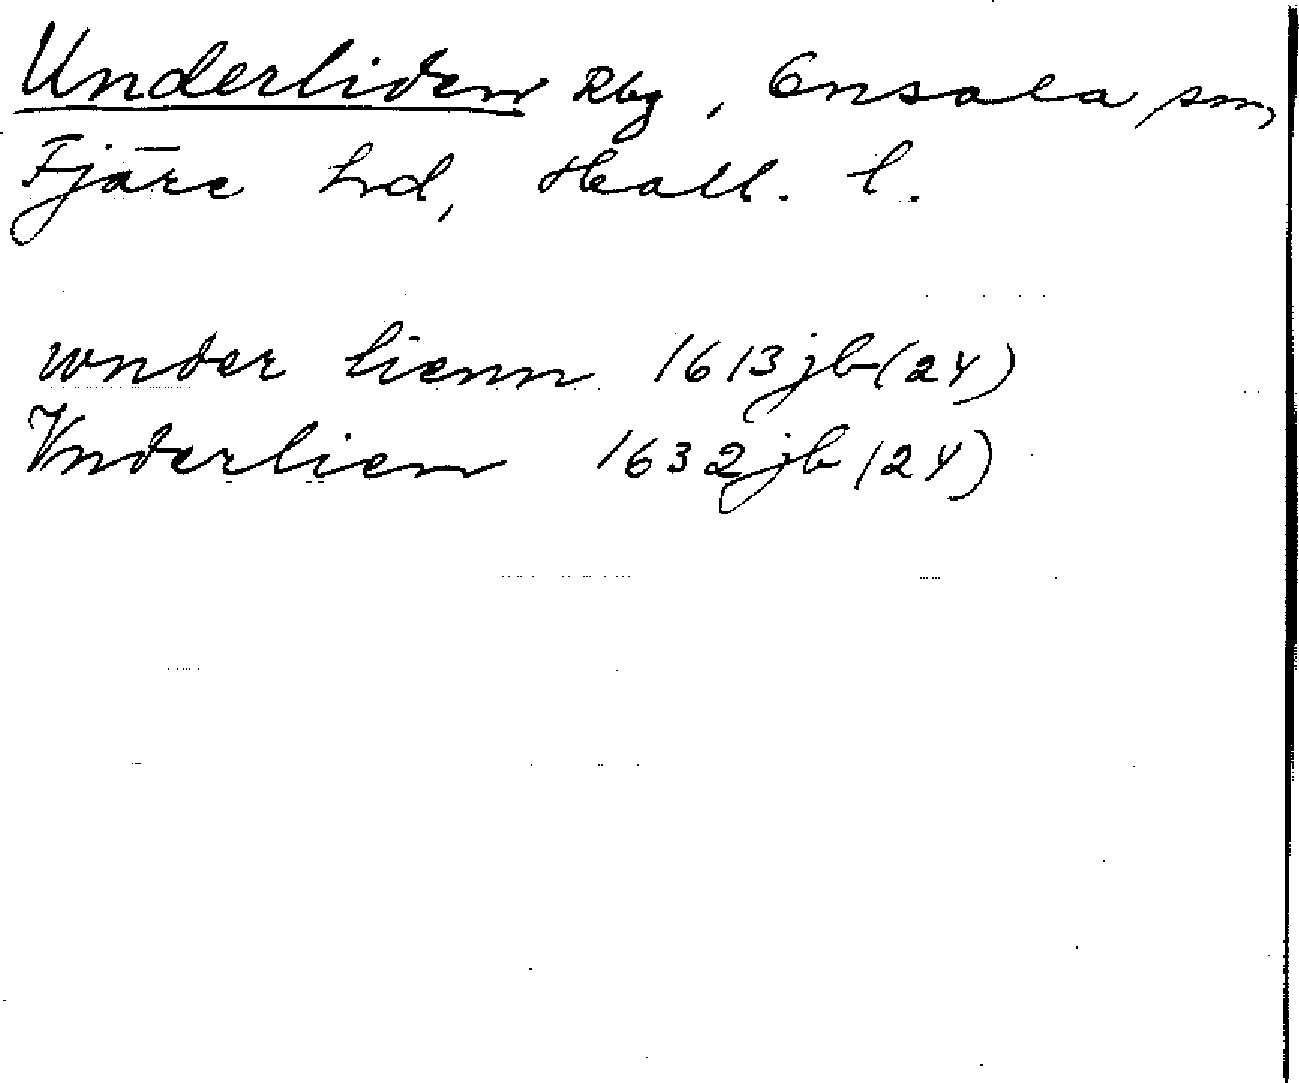 Underliden Rbg, Onsala sn,
Fjäre hd, Hall. l.
wnder Lienn 1613 jb (24)
Vnderlien 1632 jb (24)